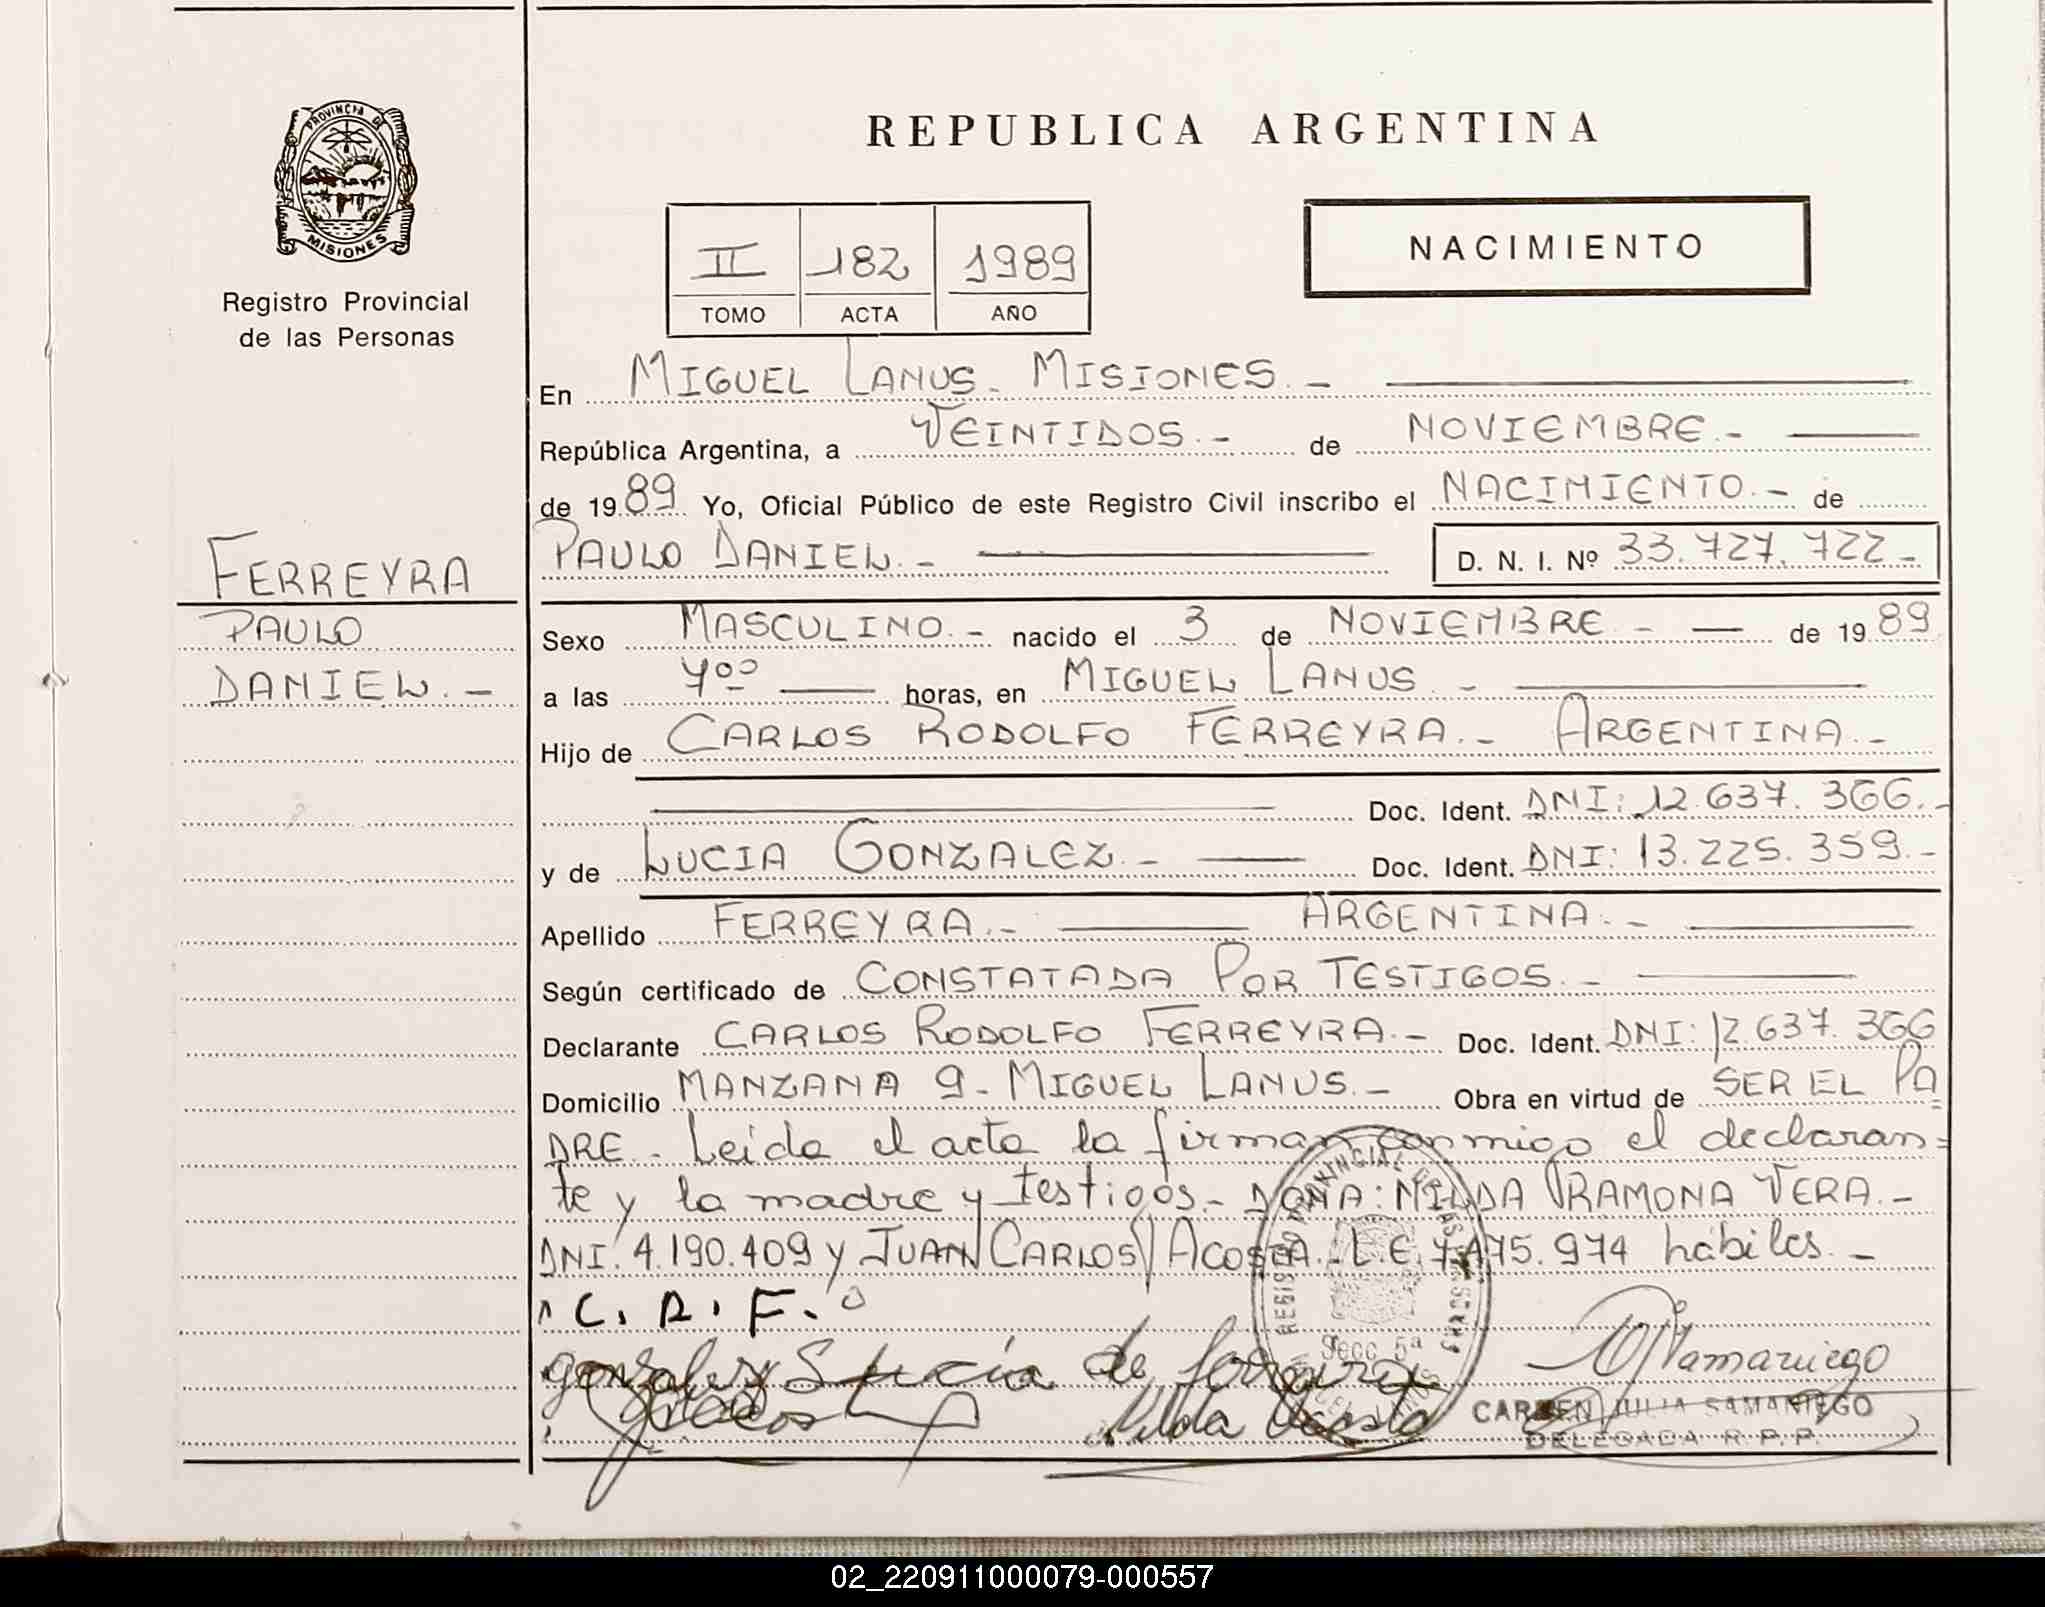 PROVINCIA DE
MISIONES
Registro Provincial
de las Personas
REPUBLICA ARGENTINA
II 182 1989
TOMO ACTA AÑO
NACIMIENTO
En MIGUEL LANUS - MISIONES. -
República Argentina, a VEINTIDOS. - de NOVIEMBRE. -
de 19 89 Yo, Oficial Público de este Registro Civil inscribo el NACIMIENTO. - de
FERREYRA
PAULO
DANIEL. -
PAULO DANIEL. - D. N. I. Nº 33.727.722 -
Sexo MASCULINO. - nacido el 3 de NOVIEMBRE - - de 19 89
a las 7ºº horas, en MIGUEL LANUS. -
Hijo de CARLOS RODOLFO FERREYRA. - ARGENTINA. -
Doc. Ident. DNI: 12.637.366. -
y de LUCIA GONZALEZ. - Doc. Ident. DNI: 13.225.359. -
Apellido FERREYRA. - ARGENTINA. -
Según certificado de CONSTATADA POR TESTIGOS. -
Declarante CARLOS RODOLFO FERREYRA. - Doc. Ident. DNI: 12.637.366
Domicilio MANZANA 9 - MIGUEL LANUS. - Obra en virtud de SER EL PA=
DRE. - Leida el acta la firman conmigo el declaran=
te y la madre y testigos. - DOÑA: NILDA RAMONA VERA. -
DNI: 4.190.409 y JUAN CARLOS ACOSTA. L.E. 7.475.974 hábiles. -
C. R. F.
gonzalez Lucia de ferreira
Acosta Nilda Acosta
Samaniego
REGISTRO PROVINCIAL DE LAS PERSONAS
Secc. 5ª
CARMEN JULIA SAMANIEGO
DELEGADA R. P. P.
02_220911000079-000557